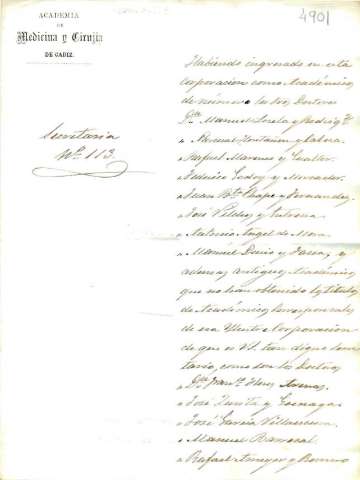 ACADEMIA
DE
Medicina y Cirujía
DE CADIZ.
4901
Secretaria
Nº 113.
Habiendo ingresado en esta
Corporacion como Académicos
de número los Sres. Doctores
Dn. Manuel y Rodrigz.
" Manuel y Cabera
" Rafael Marenco y Gualter.
" Federico Godoy y Mercader.
" Juan Bta. Chape y Fernandez.
" José y
" Antonio Angel de Mora.
" Manuel y Garcia, y
ademas antiguos Académicos
que no han obtenido los titulos
de Académicos Corresponsales
de esa Ilustre Corporacion
de que es VS. tan digno Secre
tario, como son los Doctores
" Dn. Franco. Flores Arenas.
" José y Goenaga
" José Garcia Villaescusa
" Manuel Ramoral
" Rafael Ameyer y Romero